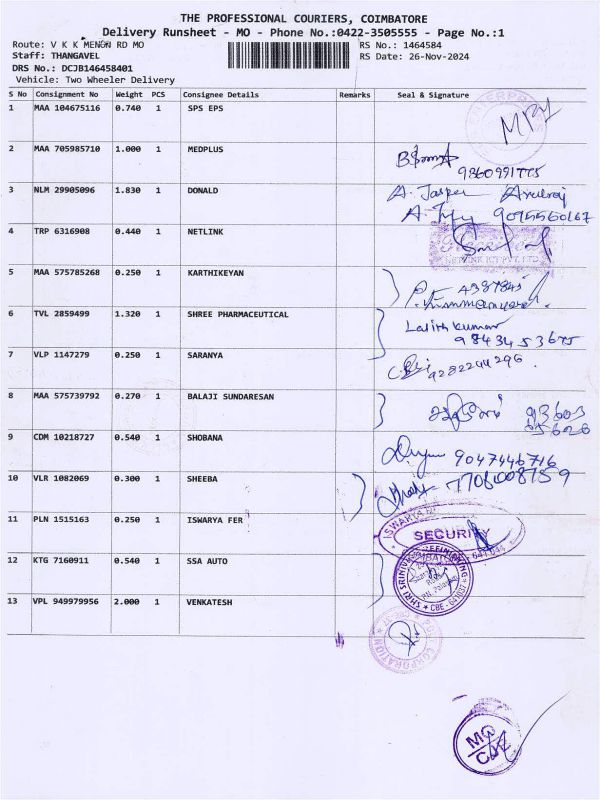 THE PROFESSIONAL COURIERS, COIMBATORE
Delivery Runsheet - MO - Phone No.:0422-3505555 - Page No.:1
Route: V K K MENON RD MO
RS No.: 1464584
Staff: THANGAVEL
RS Date: 26-Nov-2024
DRS No.: DCJB146458401
Vehicle: Two Wheeler Delivery
S No Consignment No Weight PCS Consignee Details Remarks Seal & Signature
1 MAA 104675116 0.740 1 SPS EPS
2 MAA 705985710 1.000 1 MEDPLUS
9360991775
3 NLM 29905096 1.830 1 DONALD A. Jasper Arulraj
9095560167
4 TRP 6316908 0.440 1 NETLINK
5 MAA 575785268 0.250 1 KARTHIKEYAN
6 TVL 2859499 1.320 1 SHREE PHARMACEUTICAL Lalith kumar
9843453675
7 VLP 1147279 0.250 1 SARANYA
9282244296
8 MAA 575739792 0.270 1 BALAJI SUNDARESAN
9 CDM 10218727 0.540 1 SHOBANA
9047446716
10 VLR 1082069 0.300 1 SHEEBA
11 PLN 1515163 0.250 1 ISWARYA FER
SECURITY
12 KTG 7160911 0.540 1 SSA AUTO
13 VPL 949979956 2.000 1 VENKATESH